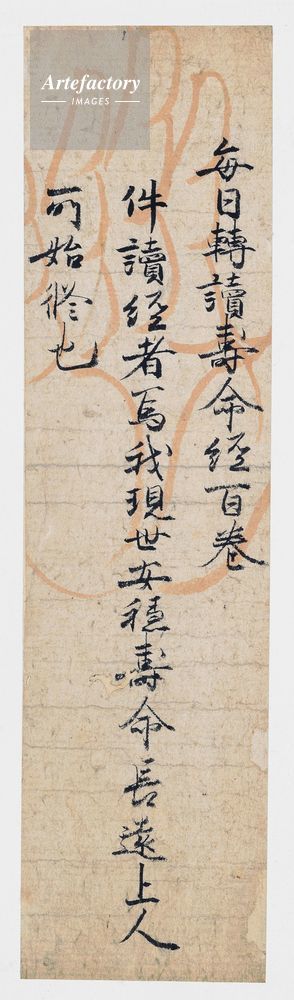 Artefactory
IMAGES
毎日轉讀壽命經百巻
件讀經者為我現世安穏壽命長遠上人
所始修也